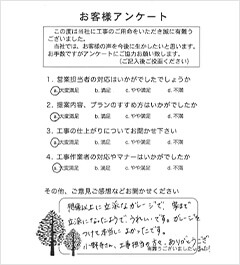 お客様アンケート
この度は当社に工事のご用命をいただき誠に有難う
ございました。
当社では、お客様の声を今後に生かしたいと思います。
お手数ですがアンケートにご協力お願い致します。
(ご記入後ご投函ください)
1. 営業担当者の対応はいかがでしたでしょうか
a.大変満足 b.満足 c.やや満足 d.不満
2. 提案内容、プランのすすめ方はいかがでしたか
a.大変満足 b.満足 c.やや満足 d.不満
3. 工事の仕上がりについてお聞かせ下さい
a.大変満足 b.満足 c.やや満足 d.不満
4. 工事作業者の対応やマナーはいかがでしたか
a.大変満足 b.満足 c.やや満足 d.不満
その他、ご意見ご感想などお聞かせください
想像以上に立派なガレージで、家まで
立派になったようで、うれしいです。ガレージを
つけて本当によかったです。
小野寺さん、工事担当の方々、ありがとうござ
有難うございましました。